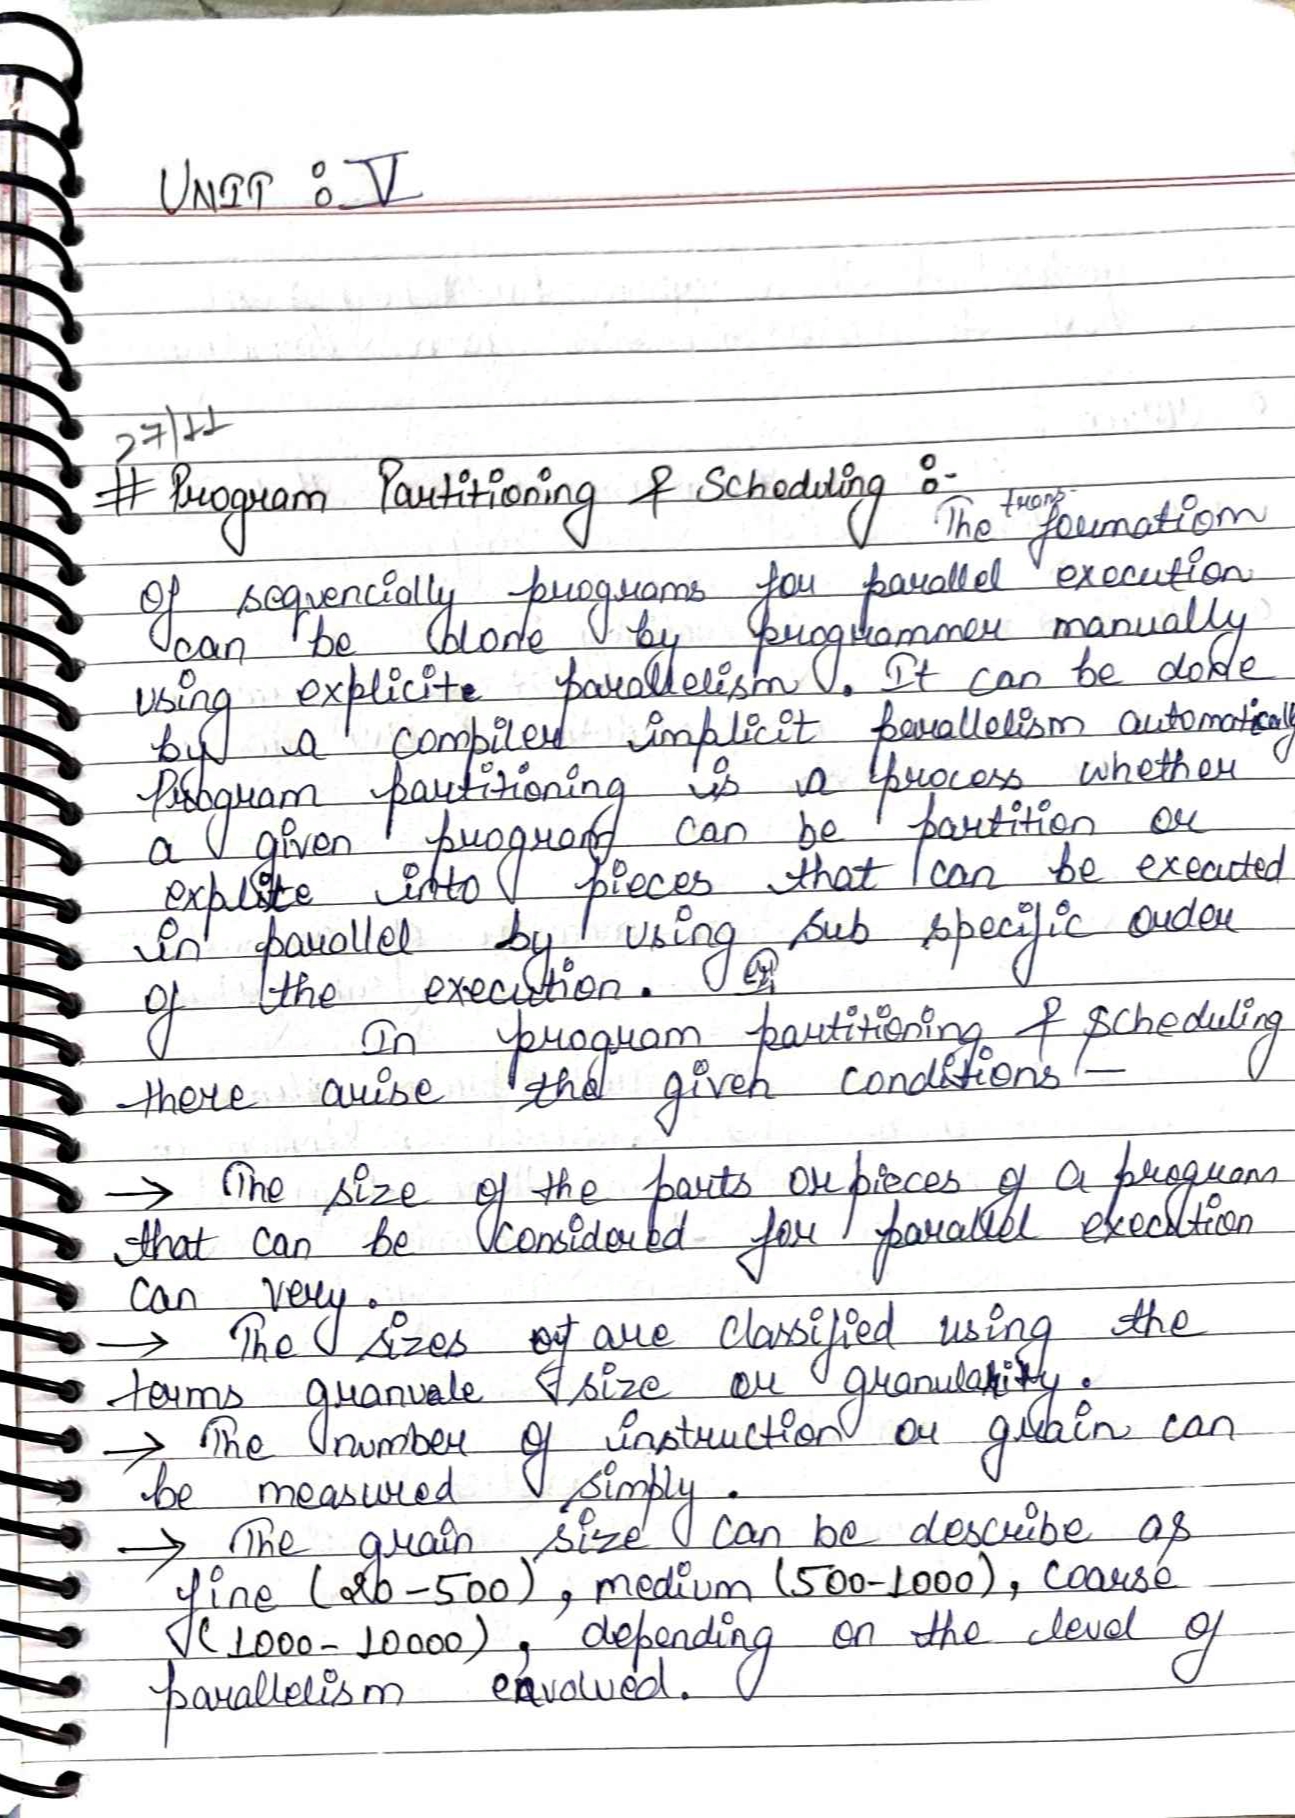 UNIT : V
27/11
# Program Partitioning & Scheduling :-
The transformation
of sequencially programs for parallel execution
can be done by programmer manually
using explicite parallelism. It can be done
by a compiler implicit parallelism automatically
Program partitioning is a process whether
a given program can be partition or
explite into pieces that can be executed
in parallel by using sub specific order
of the execution.
In program partitioning & scheduling
there arise the given conditions -
→ The size of the parts or pieces of a program
that can be considered for parallel execution
can very.
→ The sizes are classified using the
terms granuale size or granularity.
→ The number of instruction or grain can
be measured simply.
→ The grain size can be describe as
fine (20-500), medium (500-1000), coarse
(1000-10000), depending on the level of
parallelism envolved.